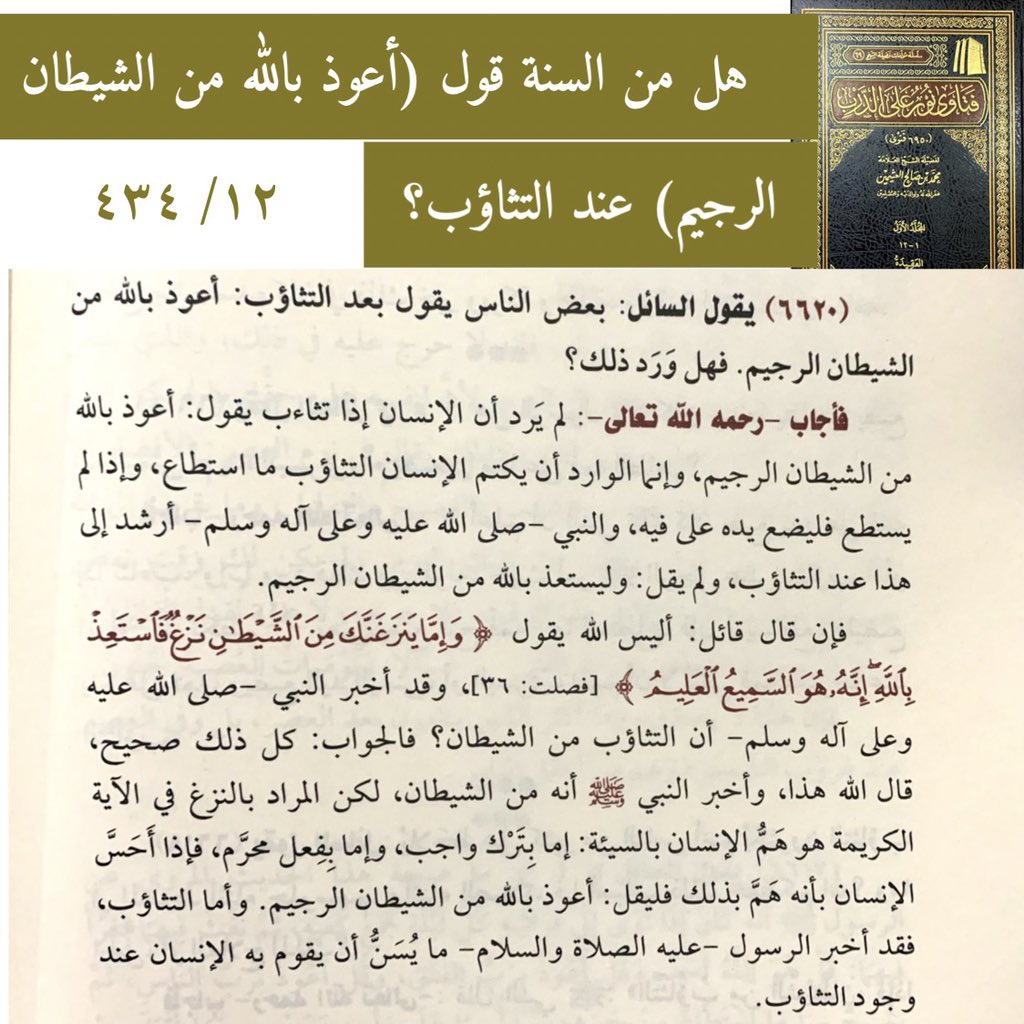 هل من السنة قول (أعوذ بالله من الشيطان
الرجيم) عند التثاؤب؟
١٢/ ٤٣٤
فتاوى نور على الدرب
(٦٩٥٠ فتوى)
لفضيلة الشيخ العلامة
محمد بن صالح العثيمين
غفر الله له ولوالديه وللمسلمين
المجلد الأول
١-١٢
العقيدة
(٦٦٢٠) يقول السائل: بعض الناس يقول بعد التثاؤب: أعوذ بالله من
الشيطان الرجيم. فهل وَرَد ذلك؟
فأجاب -رحمه الله تعالى-: لم يَرد أن الإنسان إذا تثاءب يقول: أعوذ بالله
من الشيطان الرجيم، وإنما الوارد أن يكتم الإنسان التثاؤب ما استطاع، وإذا لم
يستطع فليضع يده على فيه، والنبي -صلى الله عليه وعلى آله وسلم- أرشد إلى
هذا عند التثاؤب، ولم يقل: وليستعذ بالله من الشيطان الرجيم.
فإن قال قائل: أليس الله يقول ﴿ وَإِمَّا يَنزَغَنَّكَ مِنَ ٱلشَّيْطَٰنِ نَزْغٌ فَٱسْتَعِذْ
بِٱللَّهِ ۖ إِنَّهُۥ هُوَ ٱلسَّمِيعُ ٱلْعَلِيمُ ﴾ [فصلت: ٣٦]، وقد أخبر النبي -صلى الله عليه
وعلى آله وسلم- أن التثاؤب من الشيطان؟ فالجواب: كل ذلك صحيح،
قال الله هذا، وأخبر النبي ﷺ أنه من الشيطان، لكن المراد بالنزغ في الآية
الكريمة هو هَمُّ الإنسان بالسيئة: إما بِتَرْك واجب، وإما بِفِعل محرَّم، فإذا أَحَسَّ
الإنسان بأنه هَمَّ بذلك فليقل: أعوذ بالله من الشيطان الرجيم. وأما التثاؤب،
فقد أخبر الرسول -عليه الصلاة والسلام- ما يُسَنُّ أن يقوم به الإنسان عند
وجود التثاؤب.